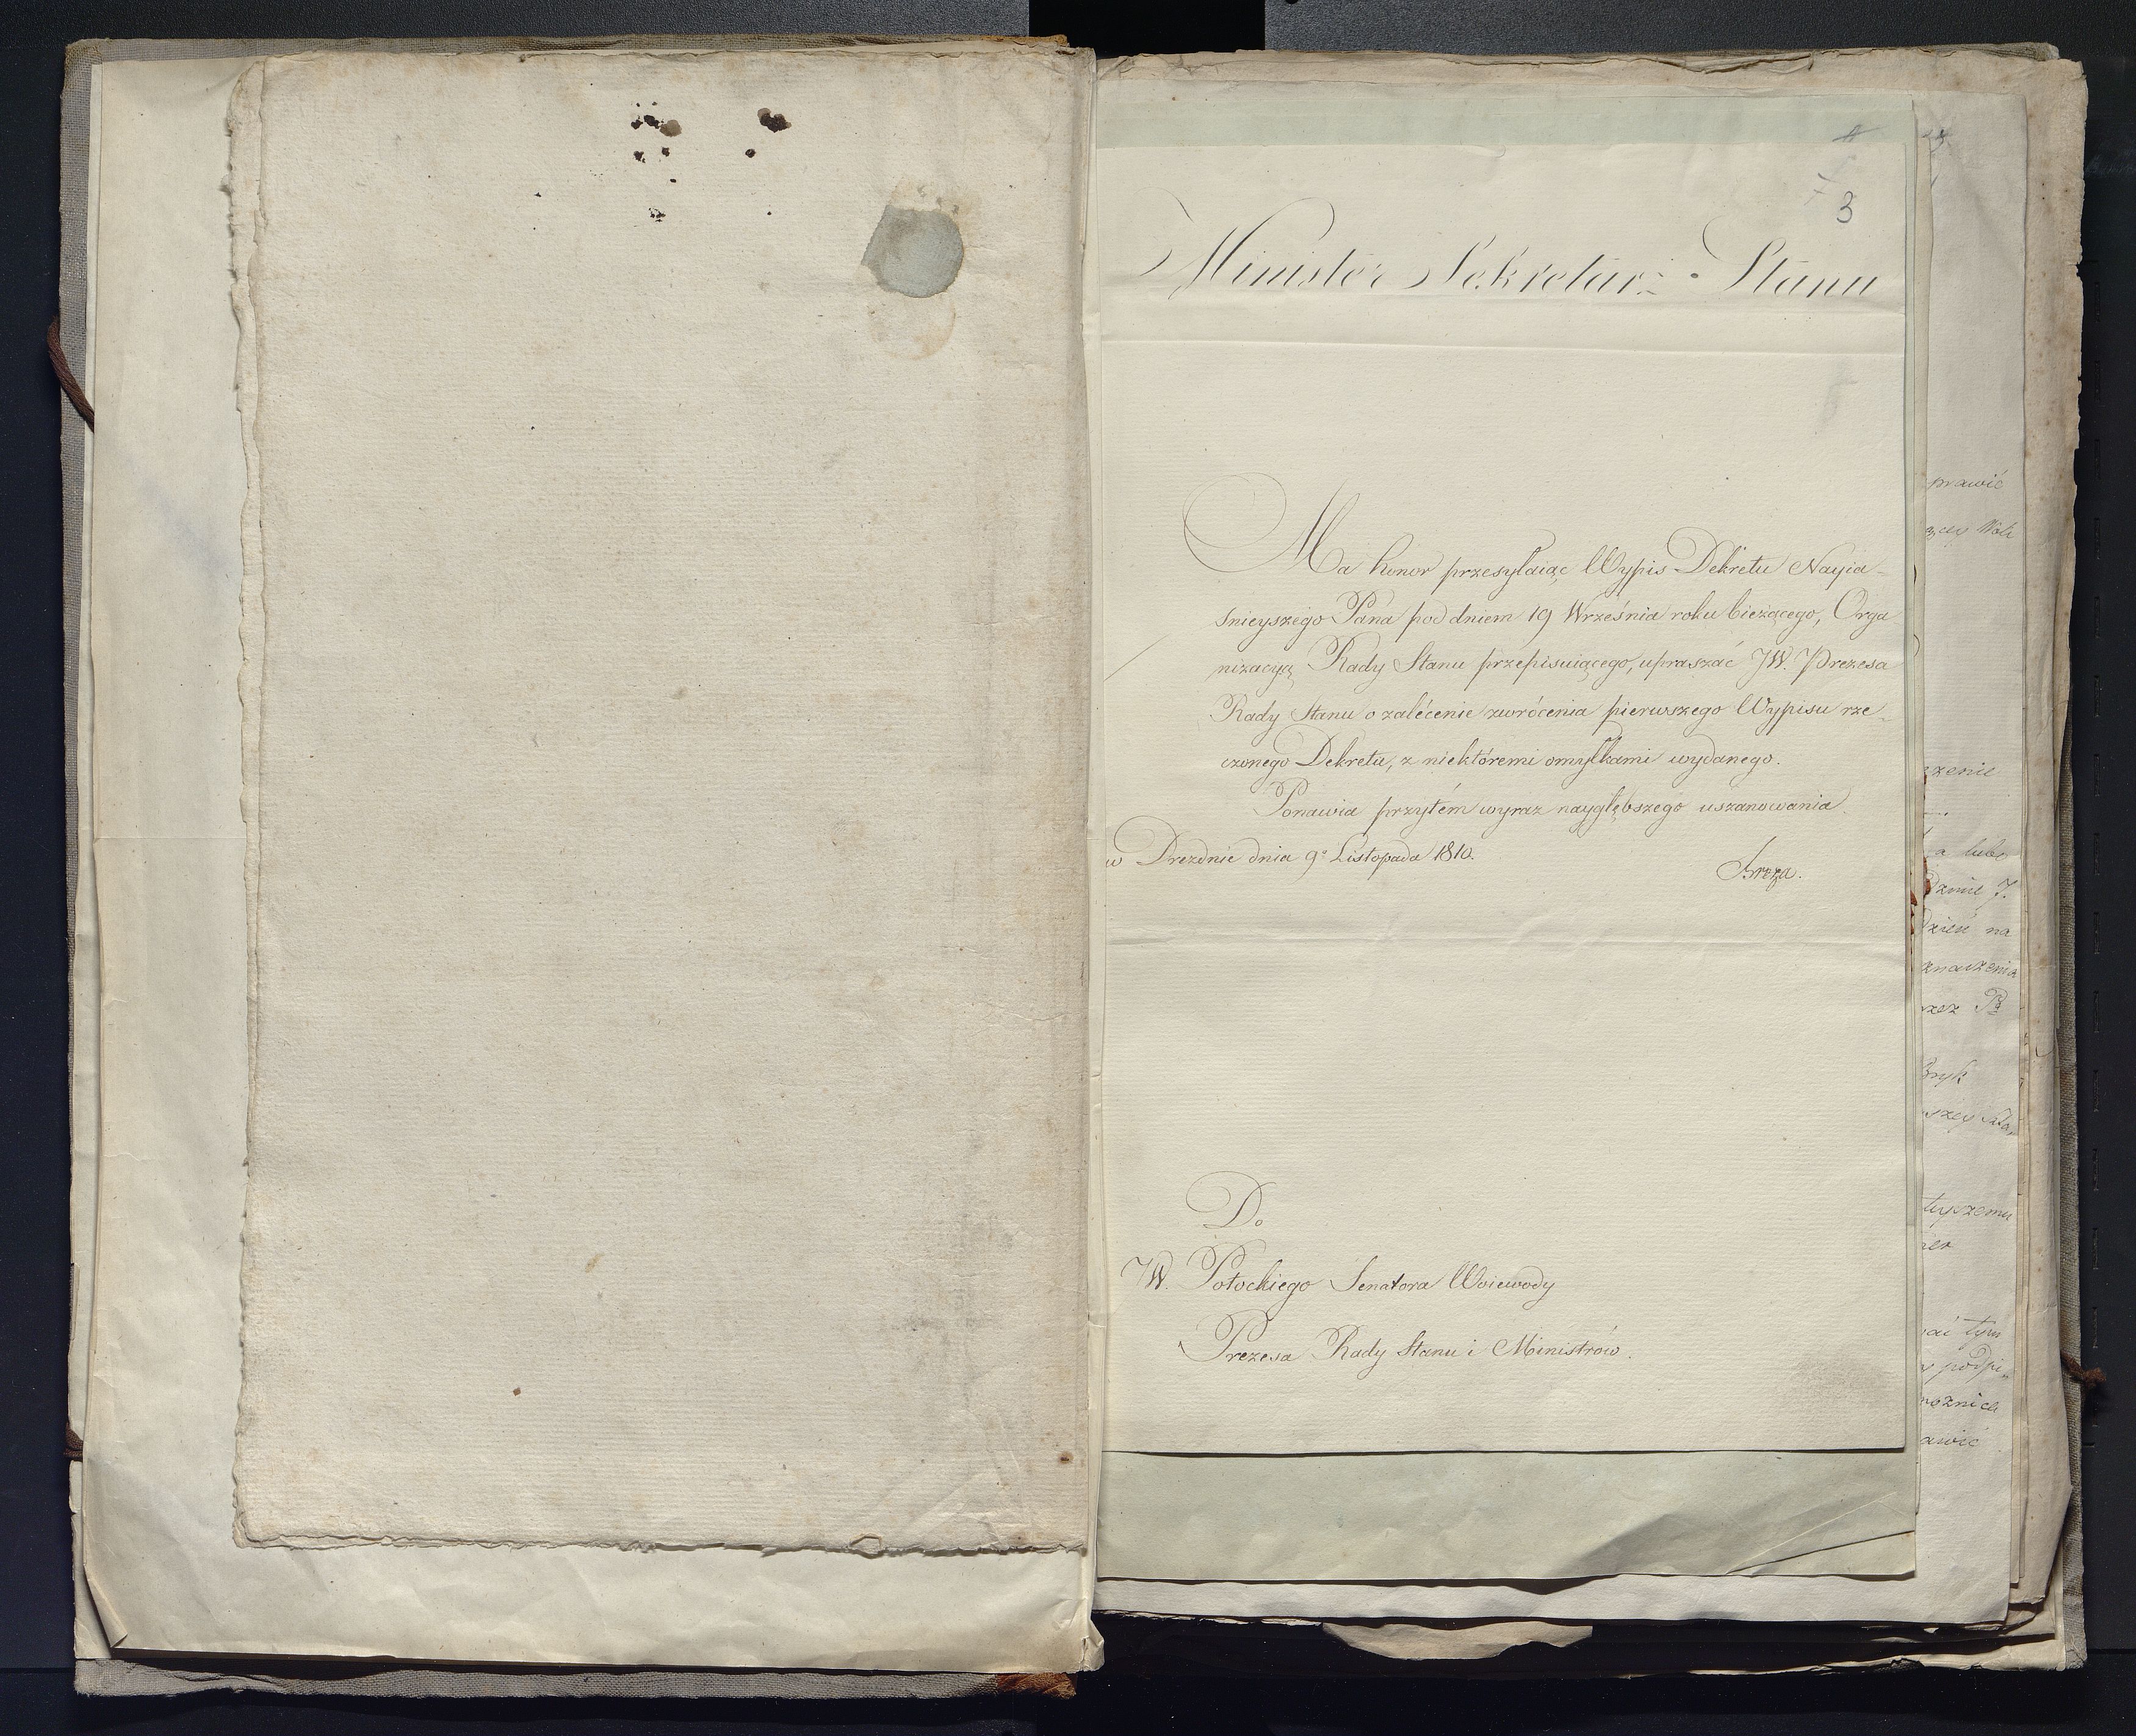 3
Minister Sekretarz Stanu
Ma honor przesyłaiąc Wypis Dekretu Nayia-
śnieyszego Pana pod dniem 19 Września roku bieżącego, Orga
nizacyą Rady Stanu przepisuiącego, upraszać JW. Prezesa
Rady Stanu o zalécenie zwrócenia pierwszego Wypisu rze-
czonego Dekretu, z niektóremi omyłkami wydanego.
Ponawia przytém wyraz naygłębszego uszanowania
w Dreznie dnia 9º Listopada 1810.
Breza.
Do
JW. Potockiego Senatora Woiewody
Prezesa Rady Stanu i Ministrów.
prawić
a lubo
dzień na
znaczenia
tyższemu
tym
podpi
awić